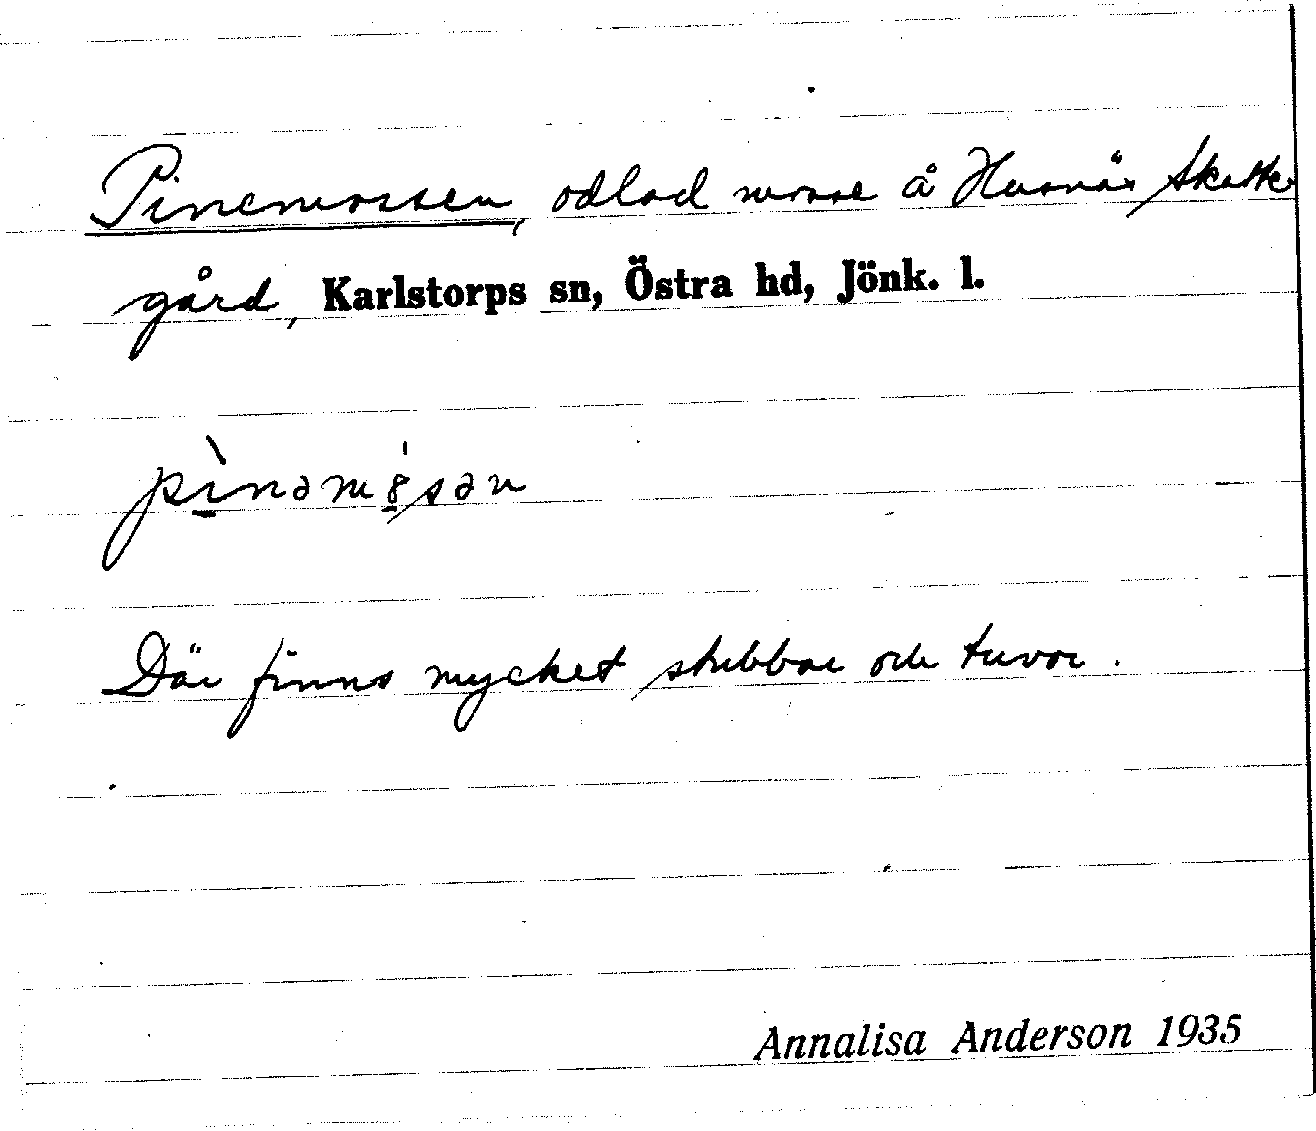 Pinemossen, odlad mosse å Husnäs Skatte-
gård, Karlstorps sn, Östra hd, Jönk. l.
Där finns mycket stubbar och tuvor.
Annalisa Anderson 1935